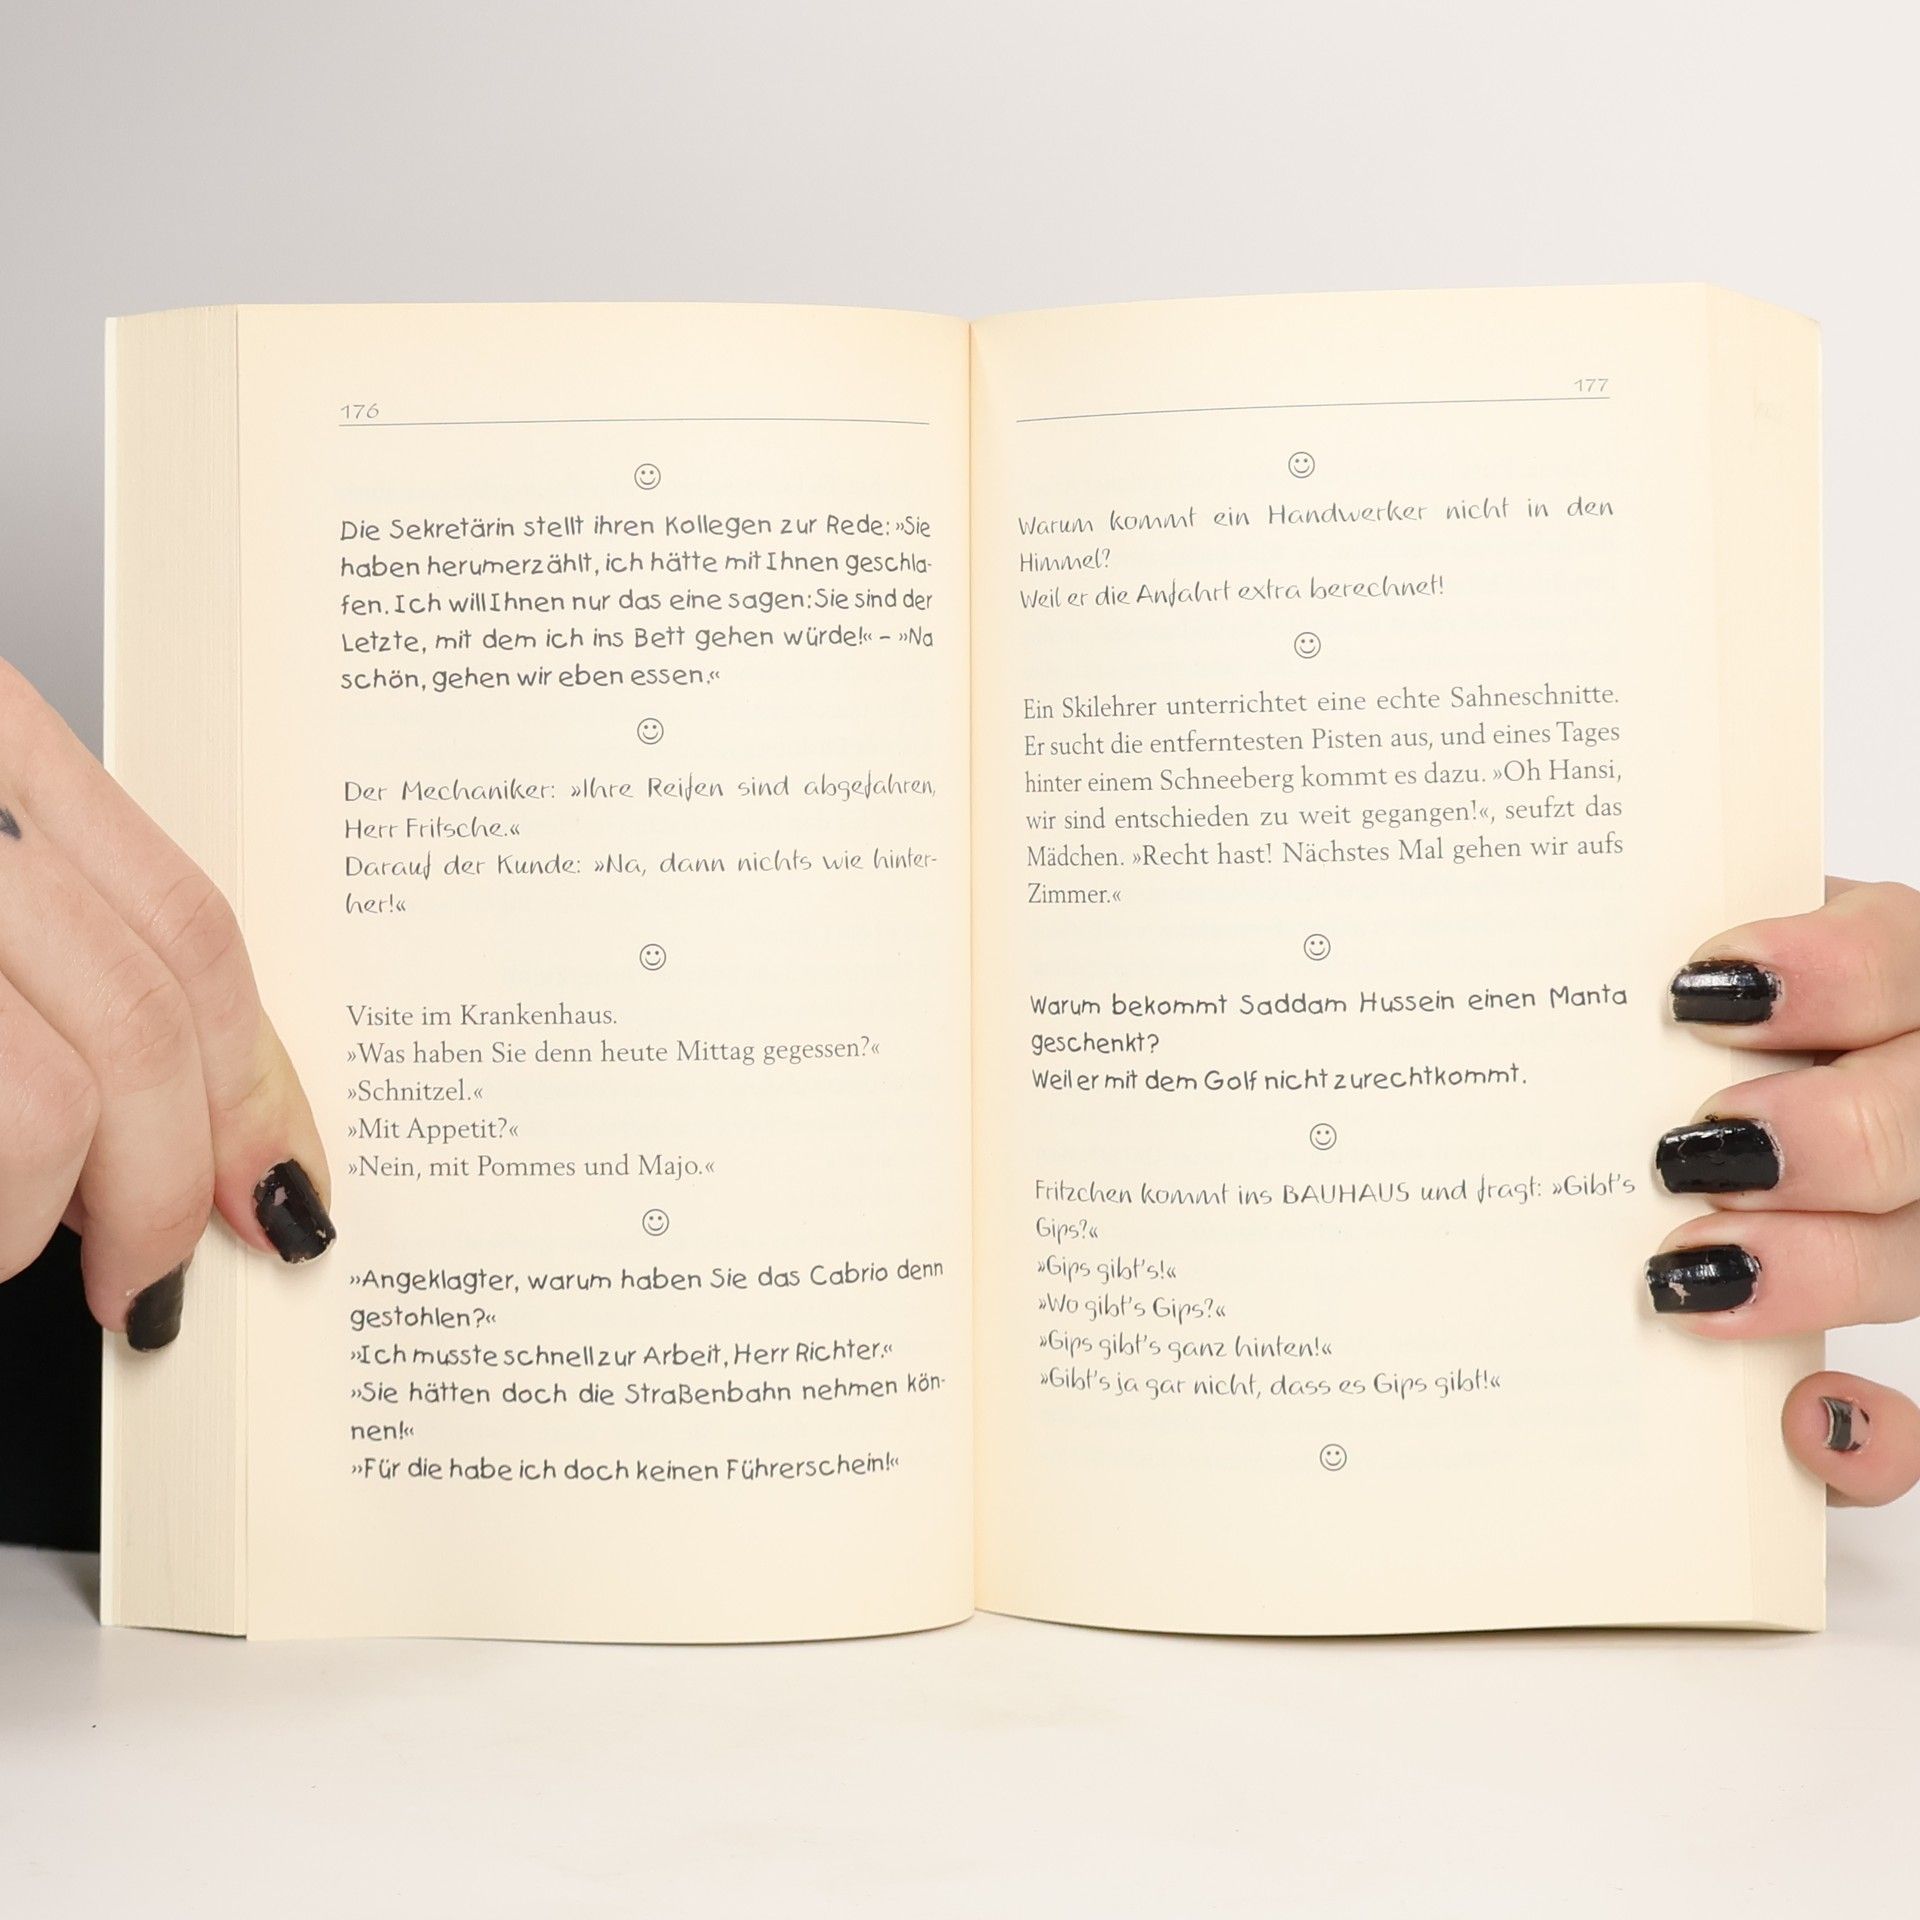 176
Die Sekretärin stellt ihren Kollegen zur Rede: »Sie
haben herumerzählt, ich hätte mit Ihnen geschla-
fen. Ich will Ihnen nur das eine sagen: Sie sind der
Letzte, mit dem ich ins Bett gehen würde!« – »Na
schön, gehen wir eben essen.«
Der Mechaniker: »Ihre Reifen sind abgefahren,
Herr Fritsche.«
Darauf der Kunde: »Na, dann nichts wie hinter-
her!«
Visite im Krankenhaus.
»Was haben Sie denn heute Mittag gegessen?«
»Schnitzel.«
»Mit Appetit?«
»Nein, mit Pommes und Majo.«
»Angeklagter, warum haben Sie das Cabrio denn
gestohlen?«
»Ich musste schnell zur Arbeit, Herr Richter.«
»Sie hätten doch die Straßenbahn nehmen kön-
nen!«
»Für die habe ich doch keinen Führerschein!«
177
Warum kommt ein Handwerker nicht in den
Himmel?
Weil er die Anfahrt extra berechnet!
Ein Skilehrer unterrichtet eine echte Sahneschnitte.
Er sucht die entferntesten Pisten aus, und eines Tages
hinter einem Schneeberg kommt es dazu. »Oh Hansi,
wir sind entschieden zu weit gegangen!«, seufzt das
Mädchen. »Recht hast! Nächstes Mal gehen wir aufs
Zimmer.«
Warum bekommt Saddam Hussein einen Manta
geschenkt?
Weil er mit dem Golf nicht zurechtkommt.
Fritzchen kommt ins BAUHAUS und fragt: »Gibt's
Gips?«
»Gips gibt's!«
»Wo gibt's Gips?«
»Gips gibt's ganz hinten!«
»Gibt's ja gar nicht, dass es Gips gibt!«